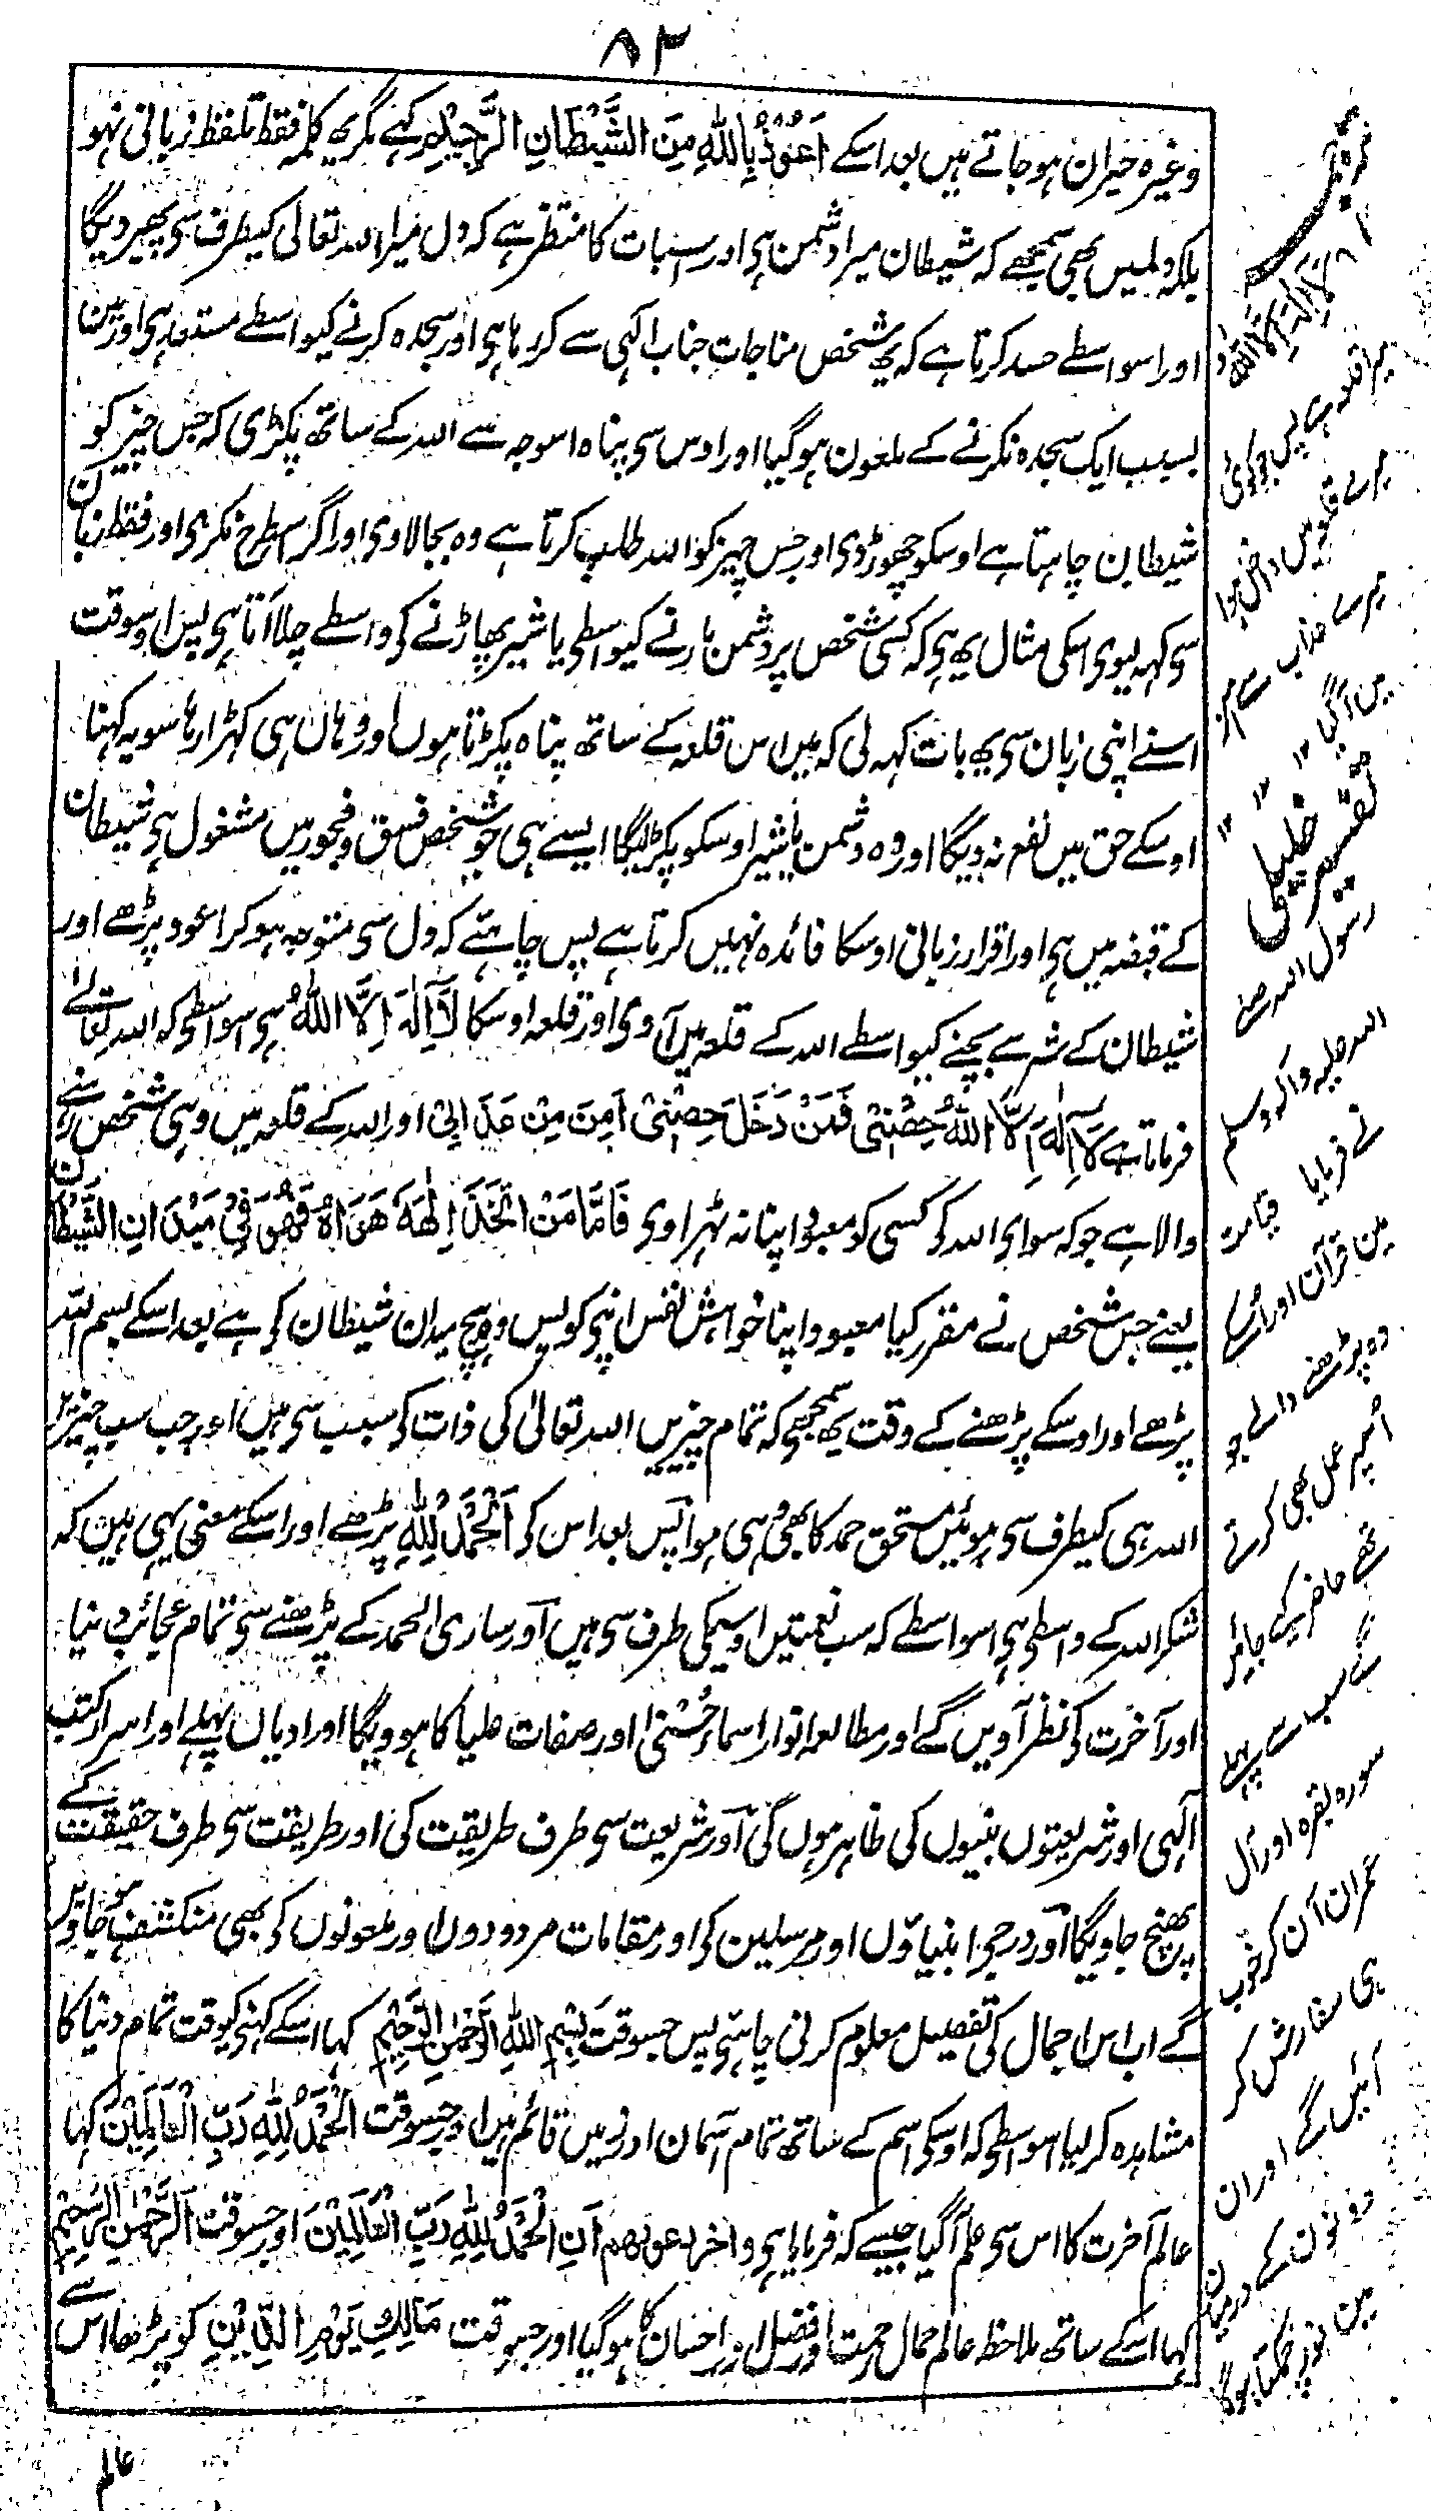 ۸۳
وغیرہ حیران ہو جاتے ہیں بعد اسکے اَعُوْذُ بِاللّٰهِ مِنَ الشَّيْطَانِ الرَّجِيْمِ کہے مگر یہ کلمہ فقط تلفظ زبانی نہو
بلکہ دلمیں بھی سمجھے کہ شیطان میرا دشمن ہی اور اسبات کا منتظر ہے کہ دل میرا اللہ تعالیٰ کیطرف سی پھیر دیگا
اور اسواسطے حسد کرتا ہے کہ یہ شخص مناجات جناب الٰہی سے کر رہا ہی اور سجدہ کرنے کیواسطے مستعد ہی اور مین
بسبب ایک سجدہ نکرنے کے ملعون ہو گیا اور اوس سی پناہ اسوجہ سے اللہ کے ساتھ پکڑی کہ جس چیز کو
شیطان چاہتا ہے اوسکو چھوڑ دی اور جس چیز کو اللہ طلب کرتا ہے وہ بجالاوی اور اگر اسطرح نکری اور فقط زبان
سی کہہ لیوی اسکی مثال یہ ہی کہ کسی شخص پر دشمن مارنے کیواسطی یا شیر پھاڑنے کی واسطے چلا آتا ہی پس اوسوقت
اسنے اپنی زبان سی یہ بات کہہ لی کہ میں اس قلعہ کے ساتھ پناہ پکڑتا ہوں اور وہاں ہی کھڑا رہا سو یہ کہنا
اوسکے حق میں نفع نہ دیگا اور وہ دشمن یا شیر اوسکو پکڑ لیگا ایسے ہی جو شخص فسق و فجور میں مشغول ہی شیطان
کے قبضہ میں ہی اور اقرار زبانی اوسکا فائدہ نہیں کرتا ہے پس چاہئے کہ دل سی متوجہ ہو کر اعوذ پڑھے اور
شیطان کے شر سے بچنے کیواسطے اللہ کے قلعہ میں آوی اور قلعہ اوسکا لَآ اِلٰهَ اِلَّا اللّٰهُ ہی اسواسطی کہ اللہ تعالےٰ
فرماتا ہے لَآ اِلٰهَ اِلَّا اللّٰهُ حِصْنِیْ فَمَنْ دَخَلَ حِصْنِیْ اَمِنَ مِنْ عَذَابِیْ اور اللہ کے قلعہ میں وہی شخص رہنے
والا ہے جو کہ سوای اللہ کی کسی کو معبود اپنا نہ ٹہراوی فَاَمَّا مَنْ اتَّخَذَ اِلٰهَهٗ هَوَاهُ فَهُوَ فِیْ مَیْدَانِ الشَّیْطَانِ
یعنے جس شخص نے مقرر کیا معبود اپنا خواہش نفس اپنی کو پس وہ بیچ میدان شیطان کی ہے بعد اسکے بسم اللہ
پڑھے اور اوسکے پڑھنے کے وقت یہ سمجھی کہ تمام چیزیں اللہ تعالیٰ کی ذات کی سبب سی ہیں اور جب سب چیزیں
اللہ ہی کیطرف سی ہوئیں مستحق حمد کا بھی وہی ہوا پس بعد اس کی اَلْحَمْدُ لِلّٰهِ پڑھے اور اسکے معنی یہی ہیں کہ
شکر اللہ کے واسطی ہی اسواسطے کہ سب نعمتیں اوسیکی طرف سی ہیں اور ساری الحمد کے پڑھنے سی تمام عجائب دنیا
اور آخرت کی نظر آویں گے اور مطالعہ انوار اسماء حُسْنیٰ اور صفات علیا کا ہوویگا اور ادیان پہلے اور اسرار کتب
الٰہی اور شریعتوں نبیوں کی ظاہر ہوں گی اور شریعت سی طرف طریقت کی اور طریقت سی طرف حقیقت کے
پہنچ جاویگا اور درجی انبیاؤں اور مرسلین کی اور مقامات مردودوں اور ملعونوں کی بھی منکشف ہو جاویں
گے اب اس اجمال کی تفصیل معلوم کرنی چاہئی پس جسوقت بِسْمِ اللّٰهِ الرَّحْمٰنِ الرَّحِيْمِ کہا اسکے کہنی کیوقت تمام دنیا کا
مشاہدہ کر لیا اسواسطی کہ اوسکی اسم کے ساتھ تمام آسمان اور زمیں قائم ہیں اور جسوقت اَلْحَمْدُ لِلّٰهِ رَبِّ الْعَالَمِيْنَ کہا
عالم آخرت کا اس سی علم آگیا جیسے کہ فرمایا ہی واخر دعوىهم اَنِ الْحَمْدُ لِلّٰهِ رَبِّ الْعَالَمِيْنَ اور جسوقت اَلرَّحْمٰنِ الرَّحِيْمِ
کہا اسکے ساتھ ملاحظہ عالم جمال رحمت اور فضل اور احسان کا ہو گیا اور جسوقت مَالِكِ يَوْمِ الدِّيْنِ کو پڑھا اس سے
عالم
لَآ اِلٰهَ اِلَّا اللّٰهُ
میرا قلعہ ہی پس جو کوئی
میرے قلعہ میں داخل ہوا
میرے عذاب سے امن
میں آگیا ۱۲
تفسیر خلیلی
رسول اللہ صلی
اللہ علیہ وآلہ وسلم
نے فرمایا قیامت
میں قرآن اور اسکے
وہ پڑھنے والے جو
اسپر عمل بھی کرتے
تھے حاضر کئے جائیں
گے سب سے پہلے
سورہ بقرہ اور آل
عمران آن کر خوب
ہی سفارش کر
ئیں گے اور ان
دونوں کے درمیان
میں نور چمکتا ہوگا